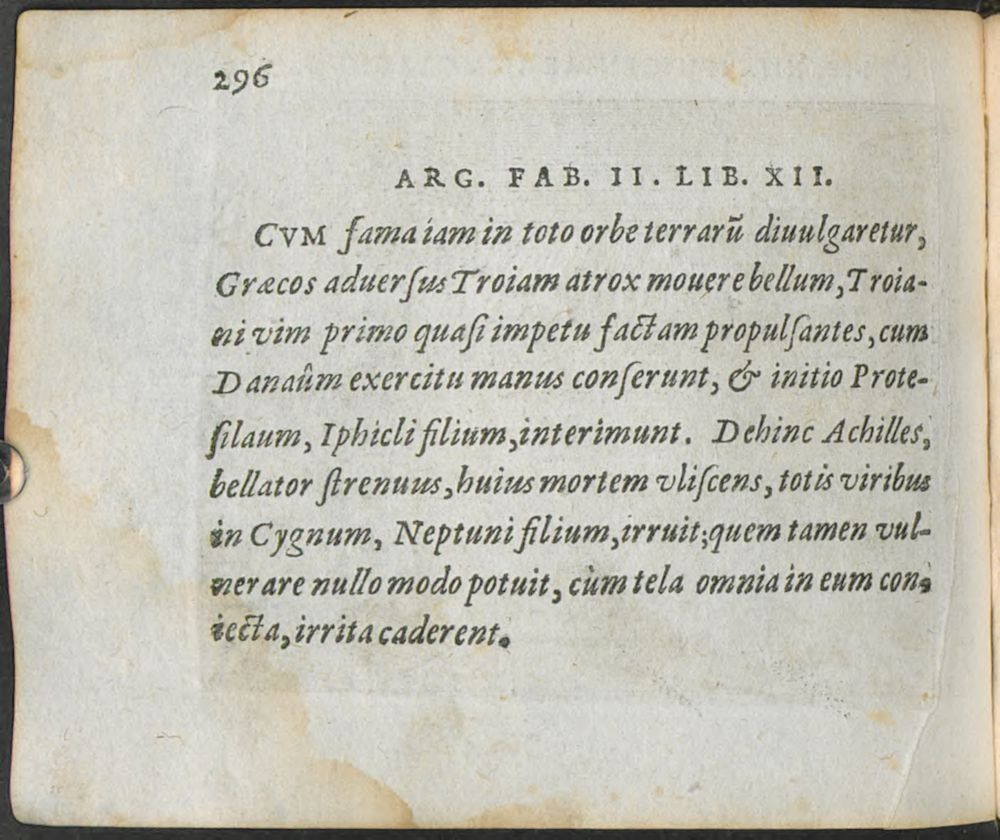 296
ARG. FAB. II. LIB. XII.
CVM fama iam in toto orbe terrarũ diuulgaretur,
Græcos aduerſus Troiam atrox mouere bellum, Troia-
ni vim primo quaſi impetu factam propulſantes, cum
Danaûm exercitu manus conſerunt, & initio Prote-
ſilaum, Iphicli filium, interimunt. Dehinc Achilles,
bellator ſtrenuus, huius mortem vliſcens, totis viribus
in Cygnum, Neptuni filium, irruit; quem tamen vul-
nerare nullo modo potuit, cùm tela omnia in eum con-
iecta, irrita caderent.